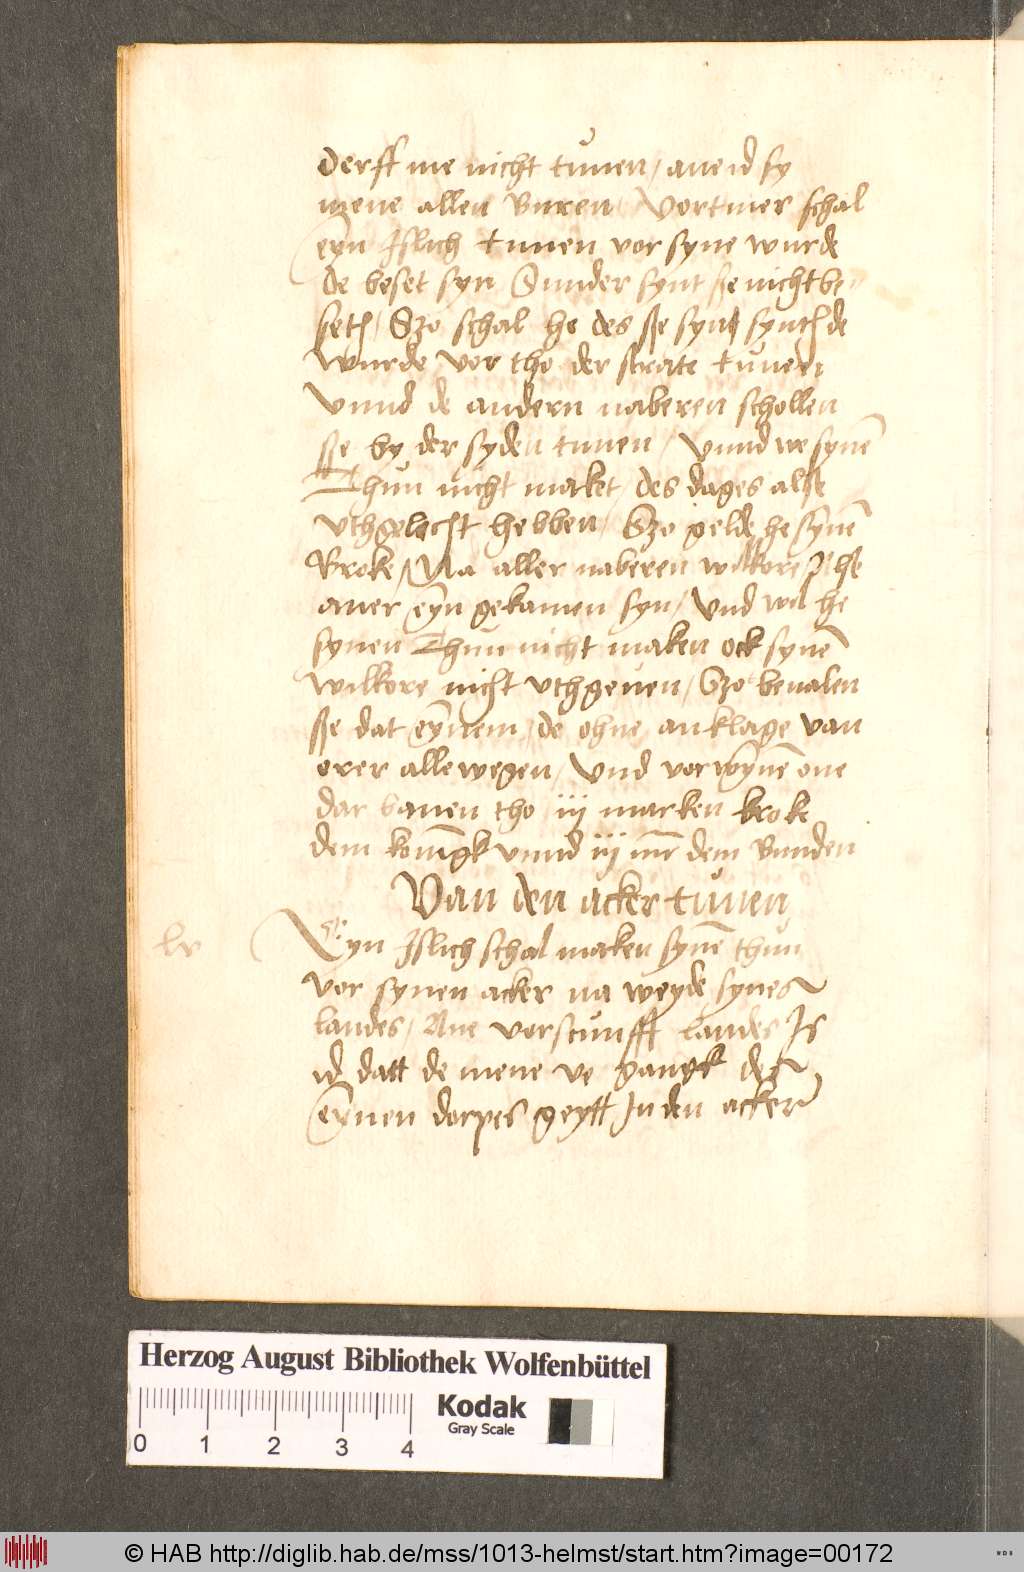 derff me nicht tunen / ane id sy
mene allen Buren Vortmer schal
eyn Islich tunen vor syne wurde
de beset syn Sunder synt se nicht be
seth / Szo schal he des sse synt synth de
wurde vor tho der strate tunen
Vnnd de andern naberen schollen
sse by der syden tunen / Vnnd we synē
Thun nicht maket / des dages alse
vthgelecht hebben / Szo gelde he synē
Broke / Na aller naberen wilkore Is he
auer eyn gekamen syn / Vnd wil he
synen Thun nicht maken ock synē
wilkore nicht vthgeuen / Szo beualen
sse dat eynem / de ohne anklage van
orer allewegen / Vnd vorwynē one
dar bauen tho iij marken broke
dem konīgk vnnd iij mr dem Bunden
Van den acker tunen
lv
Eyn Islich schal maken synē thun
vor synen acker na weyde synes
landes / Ane vorscunfft landes Is
id datt de mene ve gangk des
eynen dorpes geytt In den acker
Herzog August Bibliothek Wolfenbüttel
0 1 2 3 4
Kodak
Gray Scale
© HAB http://diglib.hab.de/mss/1013-helmst/start.htm?image=00172